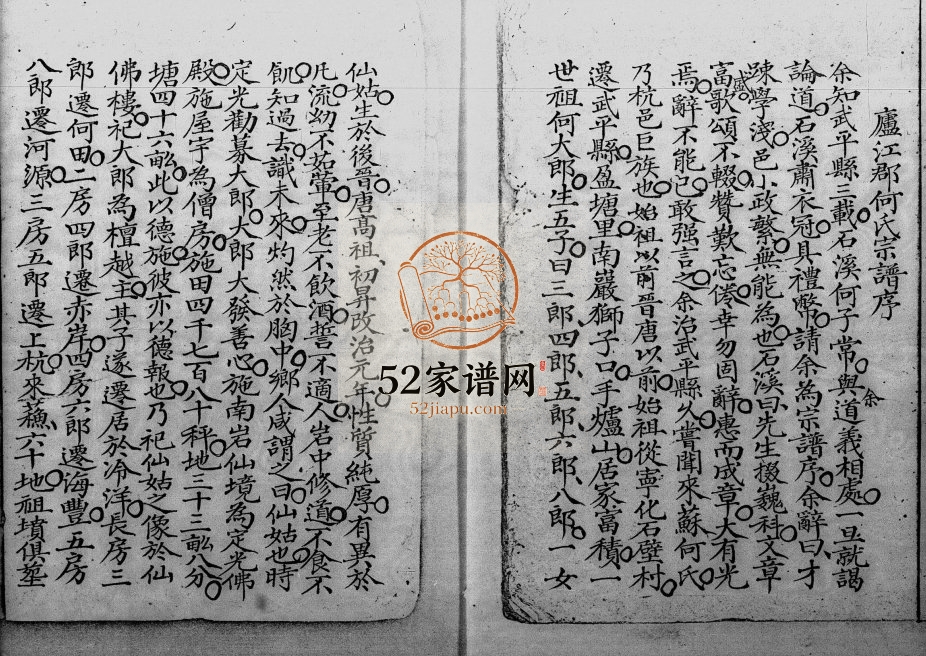 廬江郡何氏宗譜序
余知武平縣三載石溪何子常與余道義相處一旦就謁
論道石溪肅衣冠具禮幣請余為宗譜序余辭曰才
踈學淺邑小政繁無能為也石溪曰先生掇巍科文章
富盛歌頌不輟贊歎忘倦幸勿固辭惠而成章大有光
焉辭不能已敢强言之余治武平縣久嘗聞來蘇何氏
乃杭邑巨族也始祖以前晉唐以前始祖從寧化石壁村
遷武平縣盈塘里南巖獅子口手爐山居家富積一
世祖何大郎生五子曰三郎四郎五郎六郎八郎一女
仙姑生於後晉唐高祖初昇改治元年性質純厚有異於
凡流幼不茹葷至老不飲酒誓不適人岩中修道不食不
飢知過去識未來灼然於胸中鄉人咸謂之曰仙姑也時
定光勸募大郎大郎大發善心施南岩仙境為定光佛
殿施屋宇為僧房施田四千七百八十秤地三十三畝八分
塘四十六畝此以德施彼亦以德報也乃祀仙姑之像於仙
佛樓祀大郎為檀越主其子遂遷居於冷洋長房三
郎遷何田二房四郎遷赤岸四房六郎遷海豐五房
八郎遷河源三房五郎遷上杭來蘓六十地祖墳俱塟
52家谱网
52jiapu.com